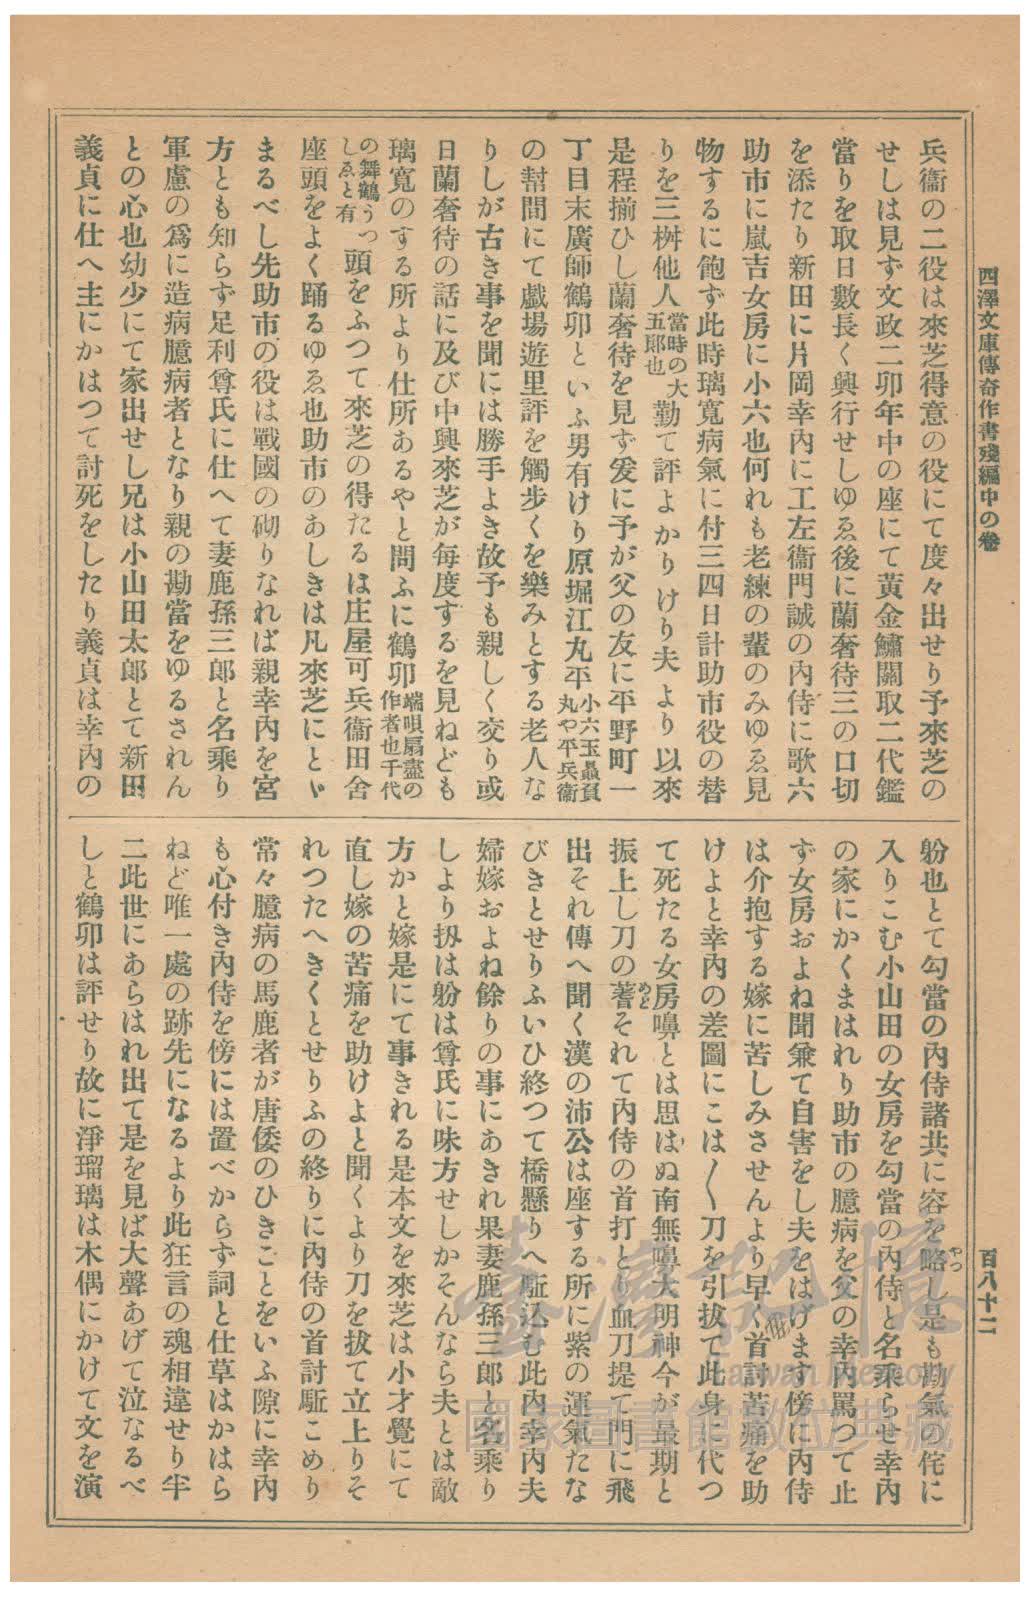 西澤文庫傳奇作書殘編中の卷
百八十二
兵衞の二役は來芝得意の役にて度々出せり予來芝の
せしは見ず文政二卯年中の座にて黃金鱐關取二代鑑
當りを取日數長く興行せしゆゑ後に蘭奢待三の口切
を添たり新田に片岡幸內に工左衞門誠の內侍に歌六
助市に嵐吉女房に小六也何れも老練の輩のみゆゑ見
物するに飽ず此時璃寬病氣に付三四日計助市役の替
りを三桝他人當時の大五郞也勤て評よかりけり夫より以來
是程揃ひし蘭奢待を見ず爰に予が父の友に平野町一
丁目末廣師鶴卯といふ男有けり原堀江丸平小六玉贔負丸や平兵衞
の幇間にて戲場遊里評を觸步くを樂みとする老人な
りしが古き事を聞には勝手よき故予も親しく交り或
日蘭奢待の話に及び中興來芝が每度するを見ねども
璃寬のする所より仕所あるやと問ふに鶴卯端唄扇盡の作者也千代
の舞鶴うつしゑと有頭をふつて來芝の得たるは庄屋可兵衞田舍
座頭をよく踊るゆゑ也助市のあしきは凡來芝にとゞ
まるべし先助市の役は戰國の砌りなれば親幸內を宮
方とも知らず足利尊氏に仕へて妻鹿孫三郞と名乘り
軍慮の爲に造病臆病者となり親の勘當をゆるされん
との心也幼少にて家出せし兄は小山田太郞とて新田
義貞に仕へ主にかはつて討死をしたり義貞は幸內の
躮也とて勾當の內侍諸共に容を略やつし是も勘氣の侘に
入りこむ小山田の女房を勾當の內侍と名乘らせ幸內
の家にかくまはれり助市の臆病を父の幸內罵つて止
ず女房およね聞兼て自害をし夫をはげます傍に內侍
は介抱する嫁に苦しみさせんより早く首討苦痛を助
けよと幸內の差圖にこは〱刀を引拔て此身に代つ
て死たる女房嚊とは思はぬ南無嚊大明神今が最期と
振上し刀の蓍めどそれて內侍の首打とり血刀提て門に飛
出それ傳へ聞く漢の沛公は座する所に紫の運氣たな
びきとせりふいひ終つて橋懸りへ駈込む此內幸內夫
婦嫁およね餘りの事にあきれ果妻鹿孫三郞と名乘り
しより扨は躮は尊氏に味方せしかそんなら夫とは敵
方かと嫁是にて事きれる是本文を來芝は小才覺にて
直し嫁の苦痛を助けよと聞くより刀を拔て立上りそ
れつたへきくとせりふの終りに內侍の首討駈こめり
常々臆病の馬鹿者が唐倭のひきごとをいふ隙に幸內
も心付き內侍を傍には置べからず詞と仕草はかはら
ねど唯一處の跡先になるより此狂言の魂相違せり半
二此世にあらはれ出て是を見ば大聲あげて泣なるべ
しと鶴卯は評せり故に淨瑠璃は木偶にかけて文を演
臺灣記憶
Taiwan Memory
國家圖書館數位典藏